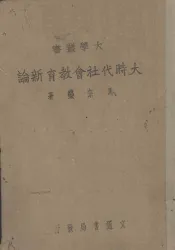 大學叢書
大時代社會教育新論
馬宗榮著
文通書局發行